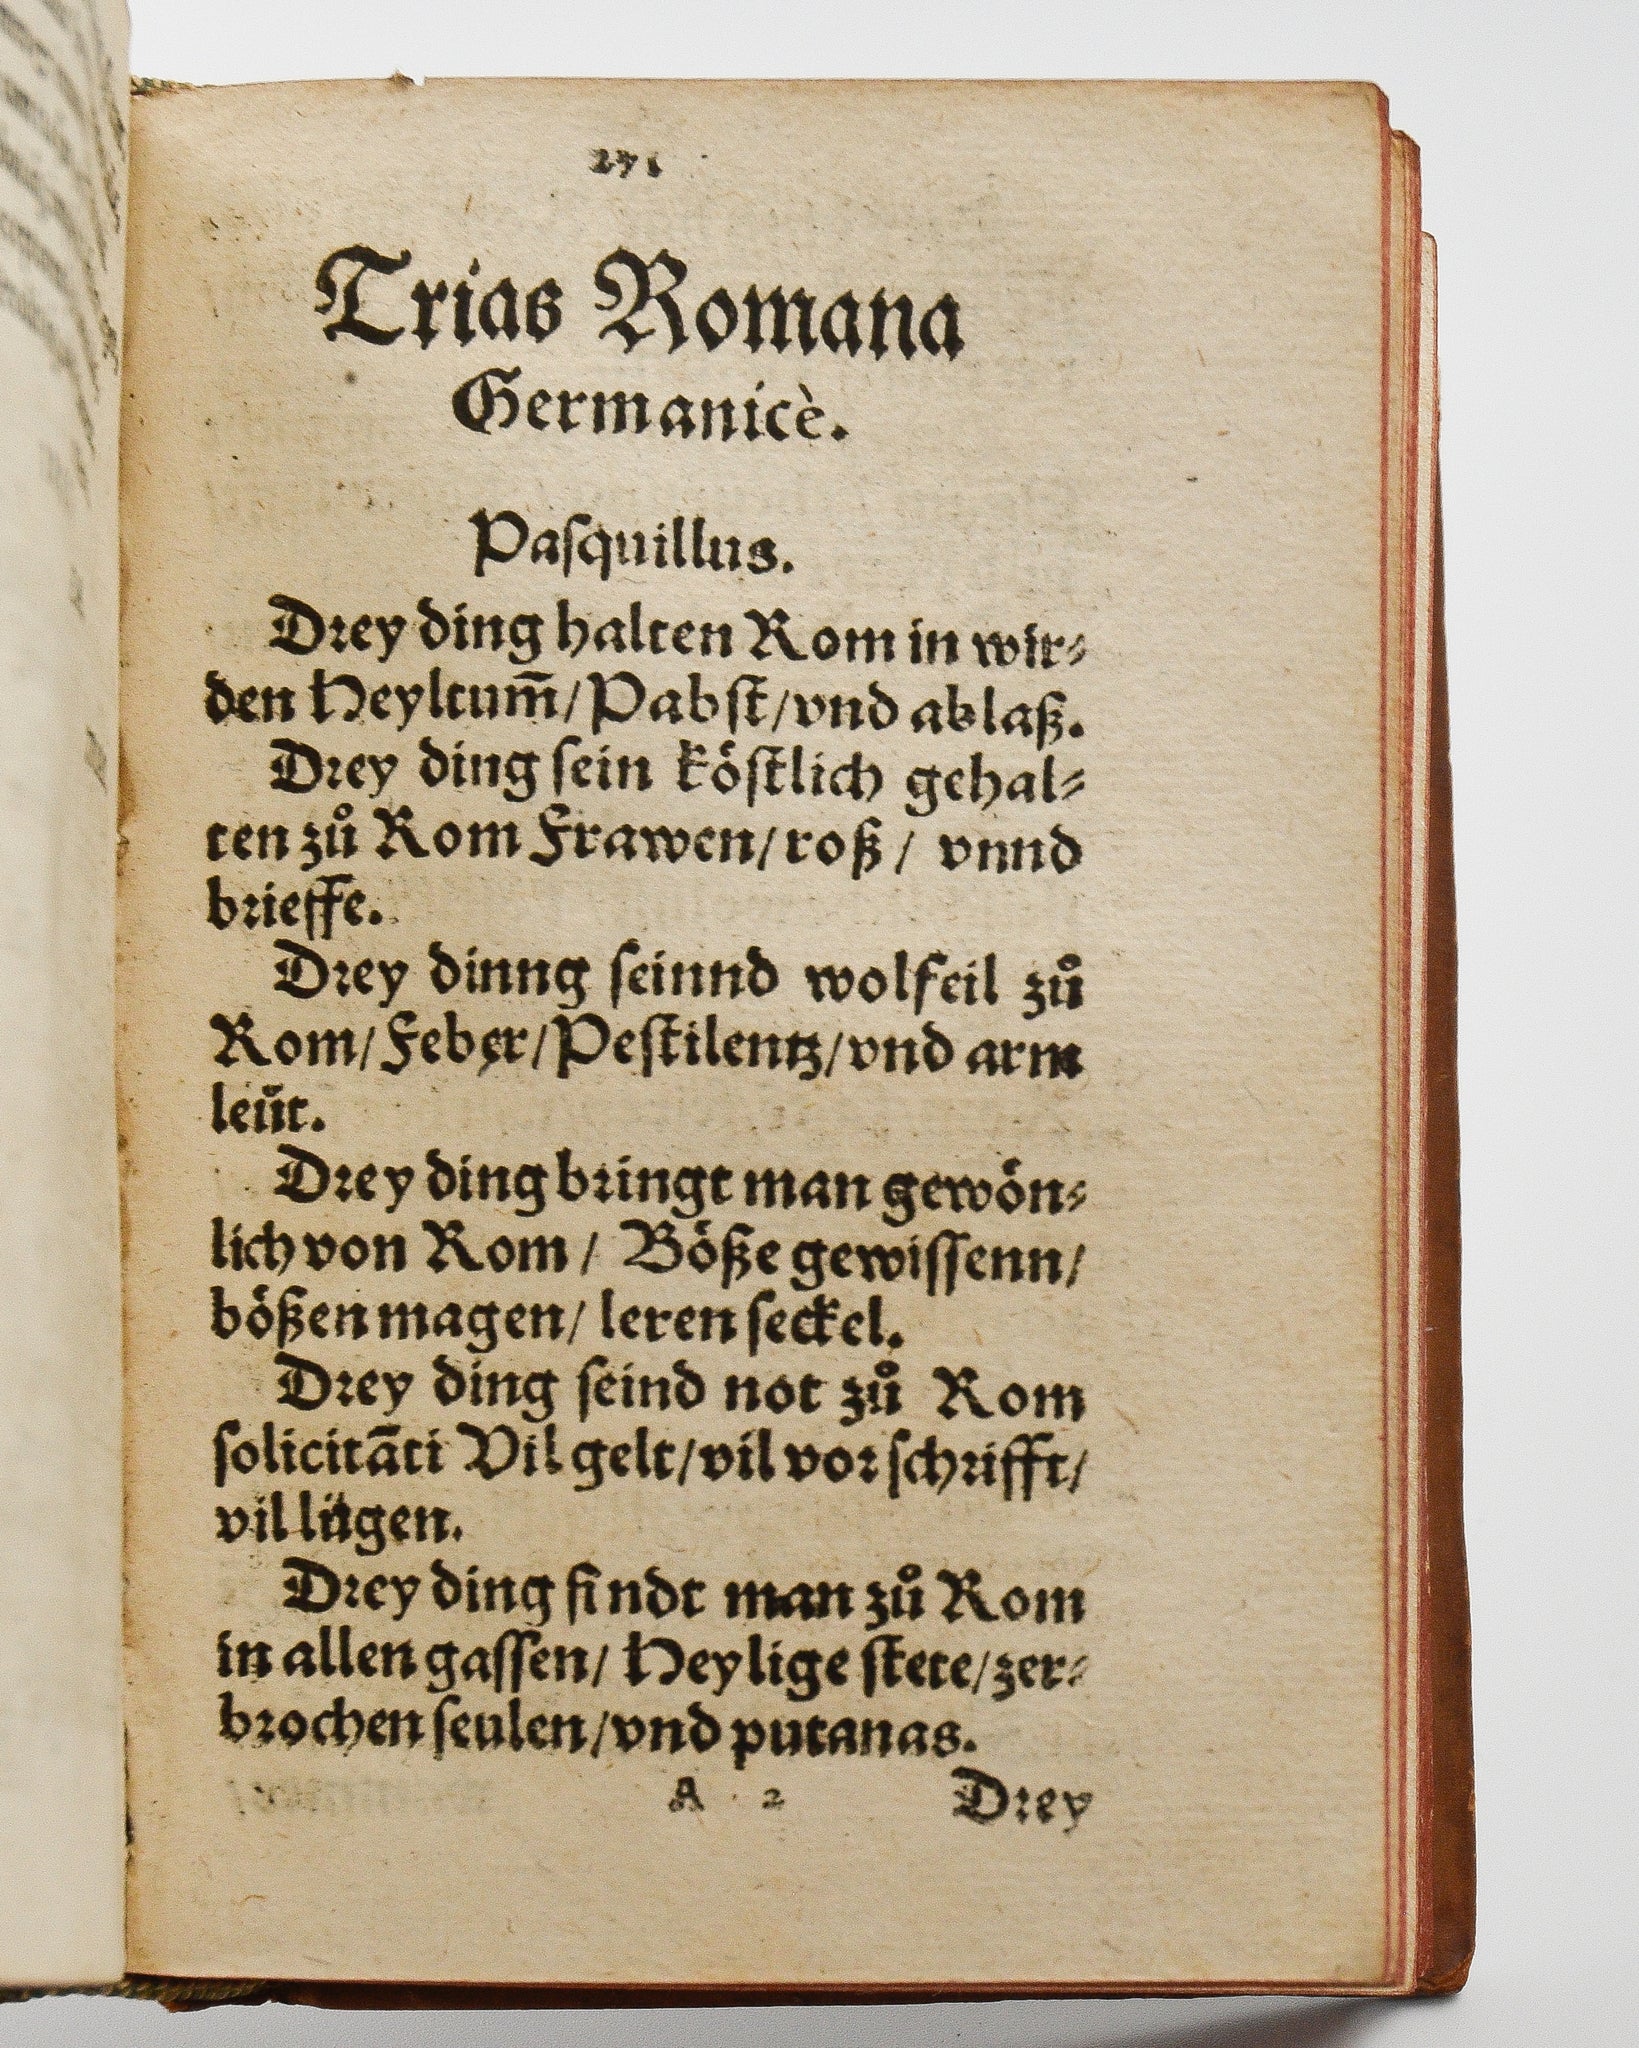 271
Trias Romana
Germanicè.
Pasquillus.
Drey ding halten Rom in wir⸗
den Heyltum̄/Pabſt/vnd ablaß.
Drey ding ſein köſtlich gehal⸗
ten zů Rom Frawen/roß/ vnnd
brieffe.
Drey dinng ſeinnd wolfeil zů
Rom/Feber/Peſtilentz/vnd arm
leůt.
Drey ding bringt man gewön⸗
lich von Rom/ Böße gewiſſenn/
bößen magen/ leren ſeckel.
Drey ding ſeind not zů Rom
ſolicitāti Vil gelt/vil vorſchrifft/
vil lügen.
Drey ding findt man zů Rom
in allen gaſſen/ Heylige ſtete/zer⸗
brochen ſeulen/vnd putanas.
A 2 Drey